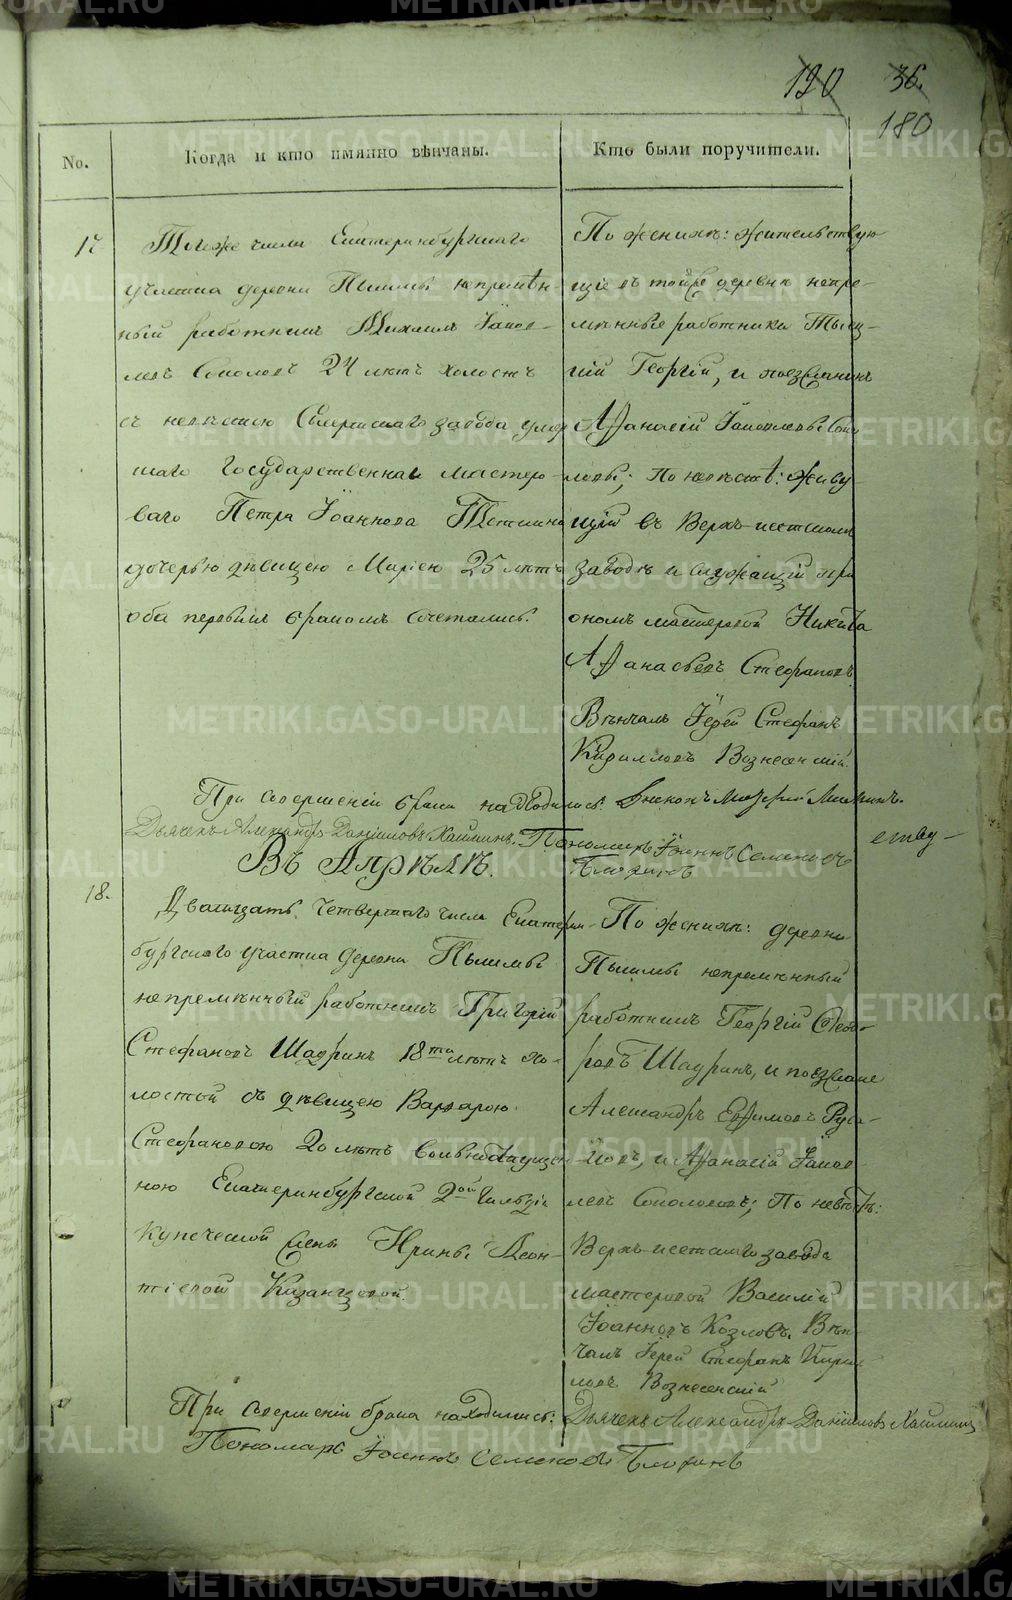 120 36.
180
No. Когда и кто имянно вѣнчаны. Кто были поручители.
17
Тогоже числа Екатеринбургскаго
участка деревни Пышмы непремѣн-
ный работникъ Михаилъ Іаков-
левъ Соколовъ 24 лѣтъ холостъ
съ невѣстою заво́да умер
шаго Государственнаго мастеро-
ваго Петра Іоаннова
дочерью дѣвицею Маріею 25 лѣтъ
оба первымъ бракомъ сочетались.
По женихѣ: жительствую
щіе въ тойже деревнѣ непре-
мѣнные работники
кій Георгій, и поезжанинъ
Аѳанасій Іаковлевъ Соко
ловъ; По невѣстѣ: живу
щій въ Верхъ-исетскомъ
заводѣ и служащій при
ономъ мастеровой Никита
Аѳанасьевъ Стефановъ
Вѣнчалъ Іерей Стефанъ
Кирилловъ Вознесенскій.
При совершеніи брака находились:
Дьячекъ Александръ Даніиловъ Пономарь Іоаннъ Семеновъ
Въ Апрѣлѣ.
18.
Двадцать четвертаго числа Екатерин-
бургскаго участка деревни Пышмы
непремѣнный работникъ Григорій
Стефановъ Шадринъ 18ти лѣтъ хо-
лостой съ дѣвицею Варварою
Стефановою 20 лѣтъ вольноотпущен
ною Екатеринбургской 2ой гильдіи
купеческой жены Ирины Леон-
тіевой Казанцовой.
По женихѣ: деревни
Пышмы непремѣнный
работникъ Георгій Ѳеодо-
ровъ Шадринъ, и поезжане
Александръ Евфимовъ Руса-
ковъ, и Аѳанасій Іаков
левъ Соколовъ; По невѣстѣ:
Верхъ-исетскаго завода
мастеровой Василій
Іоанновъ Козловъ. Вѣн-
чалъ Іерей Стефанъ Кирил
ловъ Вознесенскій
При совершеніи брака находились: Дьячекъ Александръ Даніиловъ
Пономарь Іоаннъ Семеновъ
METRIKI.GASO-URAL.RU